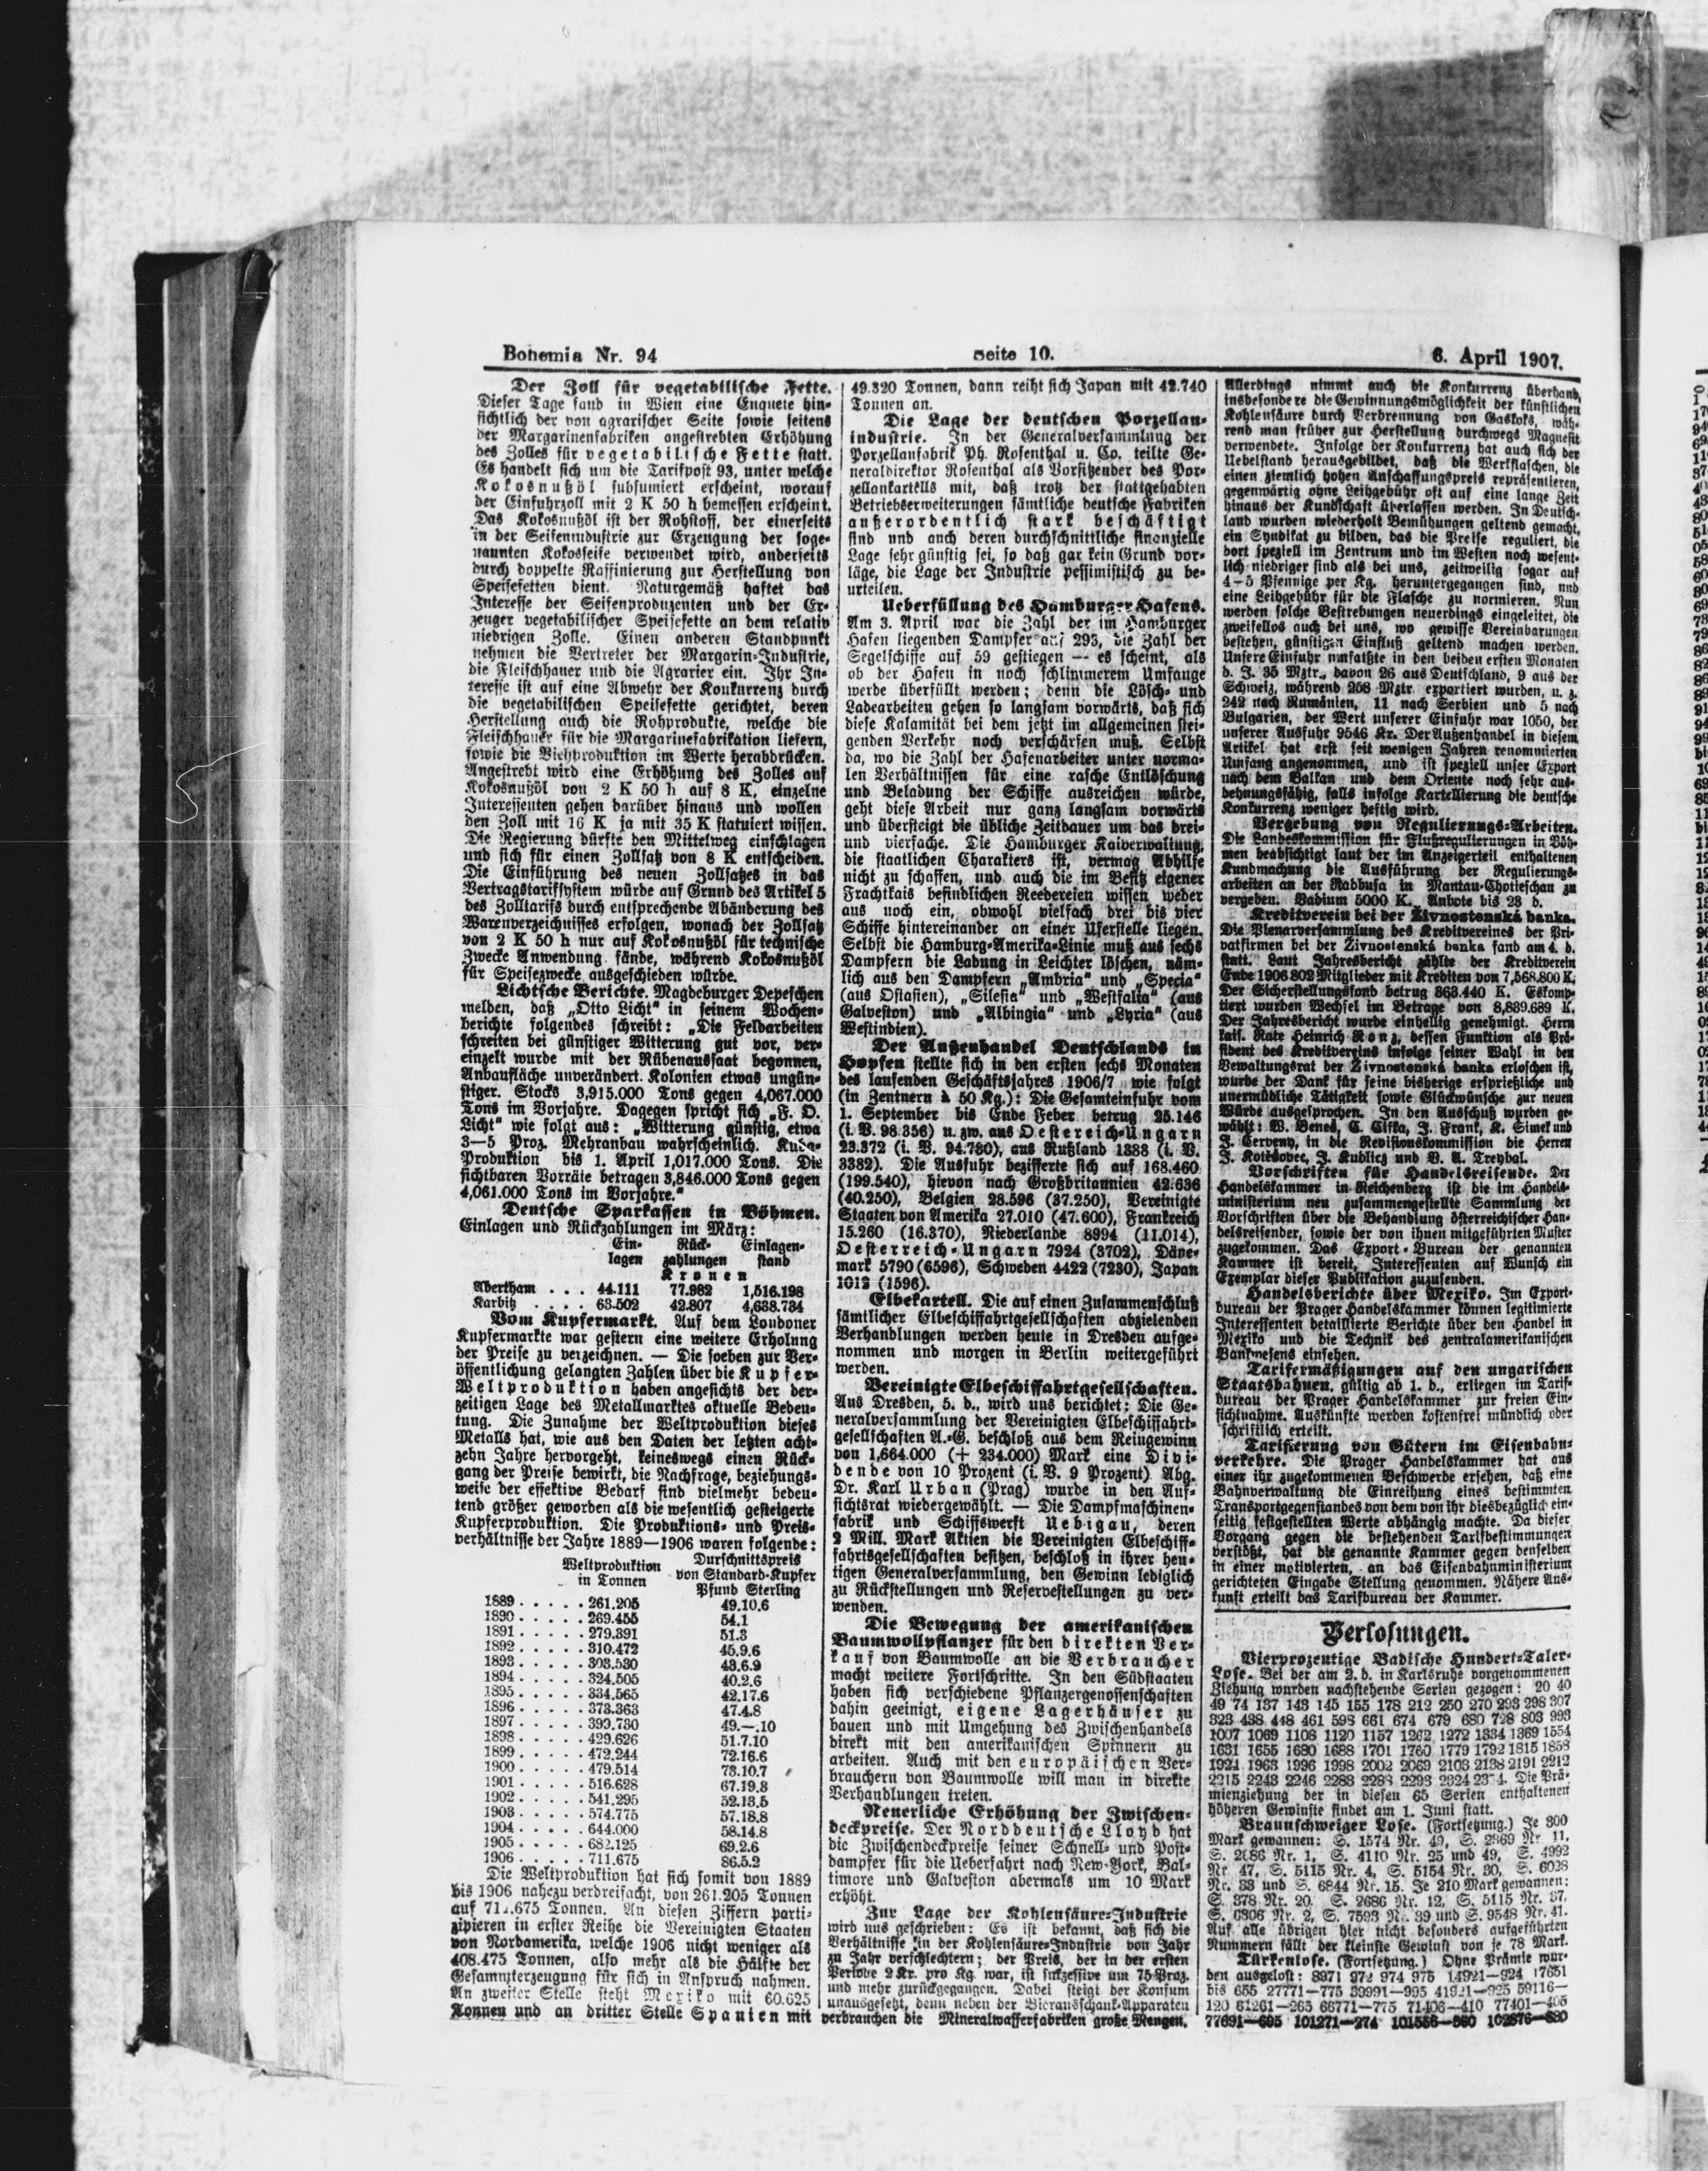 Bohemia Nr. 94
Seite 10.
6. April 1907.
Der Zoll für vegetabilische Fette.
Dieser Tage fand in Wien eine Enquete hin-
sichtlich der von agrarischer Seite sowie seitens
der Margarinenfabriken angestrebten Erhöhung
des Zolles für vegetabilische Fette statt.
Es handelt sich um die Tarifpost 93, unter welche
Kokosnußöl subsumiert erscheint, worauf
der Einfuhrzoll mit 2 K 50 h bemessen erscheint.
Das Kokosnußöl ist der Rohstoff, der einerseits
in der Seifenindustrie zur Erzeugung der soge-
nannten Kokosseife verwendet wird, anderseits
durch doppelte Raffinierung zur Herstellung von
Speisefetten dient. Naturgemäß haftet das
Interesse der Seifenproduzenten und der Er-
zeuger vegetabilischer Speisefette an dem relativ
niedrigen Zolle. Einen anderen Standpunkt
nehmen die Vertreter der Margarin-Industrie,
die Fleischhauer und die Agrarier ein. Ihr In-
teresse ist auf eine Abwehr der Konkurrenz durch
die vegetabilischen Speisefette gerichtet, deren
Herstellung auch die Rohprodukte, welche die
Fleischhauer für die Margarinefabrikation liefern,
sowie die Viehproduktion im Werte herabdrücken.
Angestrebt wird eine Erhöhung des Zolles auf
Kokosnußöl von 2 K 50 h auf 8 K, einzelne
Interessenten gehen darüber hinaus und wollen
den Zoll mit 16 K ja mit 35 K statuiert wissen.
Die Regierung dürfte den Mittelweg einschlagen
und sich für einen Zollsatz von 8 K entscheiden.
Die Einführung des neuen Zollsatzes in das
Vertragstarifsystem würde auf Grund des Artikel 5
des Zolltarifs durch entsprechende Abänderung des
Warenverzeichnisses erfolgen, wonach der Zollsatz
von 2 K 50 h nur auf Kokosnußöl für technische
Zwecke Anwendung fände, während Kokosnußöl
für Speisezwecke ausgeschieden würde.
Lichtsche Berichte. Magdeburger Depeschen
melden, daß „Otto Licht“ in seinem Wochen-
berichte folgendes schreibt: „Die Feldarbeiten
schreiten bei günstiger Witterung gut vor, ver-
einzelt wurde mit der Rübenaussaat begonnen,
Anbaufläche unverändert. Kolonien etwas ungün-
stiger. Stocks 3,915.000 Tons gegen 4,067.000
Tons im Vorjahre. Dagegen spricht sich „F. O.
Licht“ wie folgt aus: „Witterung günstig, etwa
3—5 Proz. Mehranbau wahrscheinlich. Kuba-
Produktion bis 1. April 1,017.000 Tons. Die
sichtbaren Vorräte betragen 3,846.000 Tons gegen
4,061.000 Tons im Vorjahre.“
Deutsche Sparkassen in Böhmen.
Einlagen und Rückzahlungen im März:
Ein- Rück- Einlagen-
lagen zahlungen stand
Kronen
Abertham . . . 44.111 77.982 1,516.198
Karbitz . . . . 63.502 42.807 4,638.734
Vom Kupfermarkt. Auf dem Londoner
Kupfermarkte war gestern eine weitere Erholung
der Preise zu verzeichnen. — Die soeben zur Ver-
öffentlichung gelangten Zahlen über die Kupfer-
Weltproduktion haben angesichts der der-
zeitigen Lage des Metallmarktes aktuelle Bedeu-
tung. Die Zunahme der Weltproduktion dieses
Metalls hat, wie aus den Daten der letzten acht-
zehn Jahre hervorgeht, keineswegs einen Rück-
gang der Preise bewirkt, die Nachfrage, beziehungs-
weise der effektive Bedarf sind vielmehr bedeu-
tend größer geworden als die wesentlich gesteigerte
Kupferproduktion. Die Produktions- und Preis-
verhältnisse der Jahre 1889—1906 waren folgende:
Weltproduktion Durschnittspreis
in Tonnen von Standard-Kupfer
Pfund Sterling
1889 . . . . . 261.205 49.10.6
1890 . . . . . 269.455 54.1
1891 . . . . . 279.391 51.3
1892 . . . . . 310.472 45.9.6
1893 . . . . . 303.530 43.6.9
1894 . . . . . 324.505 40.2.6
1895 . . . . . 334.565 42.17.6
1896 . . . . . 373.363 47.4.8
1897 . . . . . 399.730 49.—.10
1898 . . . . . 429.626 51.7.10
1899 . . . . . 472.244 72.16.6
1900 . . . . . 479.514 73.10.7
1901 . . . . . 516.628 67.19.8
1902 . . . . . 541.295 52.13.5
1903 . . . . . 574.775 57.18.8
1904 . . . . . 644.000 58.14.8
1905 . . . . . 682.125 69.2.6
1906 . . . . . 711.675 86.5.2
Die Weltproduktion hat sich somit von 1889
bis 1906 nahezu verdreifacht, von 261.205 Tonnen
auf 711.675 Tonnen. An diesen Ziffern parti-
zipieren in erster Reihe die Vereinigten Staaten
von Nordamerika, welche 1906 nicht weniger als
408.475 Tonnen, also mehr als die Hälfte der
Gesamterzeugung für sich in Anspruch nahmen.
An zweiter Stelle steht Mexiko mit 60.625
Tonnen und an dritter Stelle Spanien mit
49.320 Tonnen, dann reiht sich Japan mit 42.740
Tonnen an.
Die Lage der deutschen Porzellan-
industrie. In der Generalversammlung der
Porzellanfabrik Ph. Rosenthal u. Co. teilte Ge-
neraldirektor Rosenthal als Vorsitzender des Por-
zellankartells mit, daß trotz der stattgehabten
Betriebserweiterungen sämtliche deutsche Fabriken
außerordentlich stark beschäftigt
sind und auch deren durchschnittliche finanzielle
Lage sehr günstig sei, so daß gar kein Grund vor-
läge, die Lage der Industrie pessimistisch zu be-
urteilen.
Ueberfüllung des Hamburger Hafens.
Am 3. April war die Zahl der im Hamburger
Hafen liegenden Dampfer auf 293, die Zahl der
Segelschiffe auf 59 gestiegen — es scheint, als
ob der Hafen in noch schlimmerem Umfange
werde überfüllt werden; denn die Lösch- und
Ladearbeiten gehen so langsam vorwärts, daß sich
diese Kalamität bei dem jetzt im allgemeinen stei-
genden Verkehr noch verschärfen muß. Selbst
da, wo die Zahl der Hafenarbeiter unter norma-
len Verhältnissen für eine rasche Entlöschung
und Beladung der Schiffe ausreichen würde,
geht diese Arbeit nur ganz langsam vorwärts
und übersteigt die übliche Zeitdauer um das drei-
und vierfache. Die Hamburger Kaiverwaltung,
die staatlichen Charakters ist, vermag Abhilfe
nicht zu schaffen, und auch die im Besitz eigener
Frachtkais befindlichen Reedereien wissen weder
aus noch ein, obwohl vielfach drei bis vier
Schiffe hintereinander an einer Uferstelle liegen.
Selbst die Hamburg-Amerika-Linie muß aus sechs
Dampfern die Ladung in Leichter löschen, näm-
lich aus den Dampfern „Ambria“ und „Specia“
(aus Ostasien), „Silesia“ und „Westfalia“ (aus
Galveston) und „Albingia“ und „Syria“ (aus
Westindien).
Der Außenhandel Deutschlands in
Hopfen stellte sich in den ersten sechs Monaten
des laufenden Geschäftsjahres 1906/7 wie folgt
(in Zentnern à 50 Kg.): Die Gesamteinfuhr vom
1. September bis Ende Feber betrug 25.146
(i. V. 98.356) u. zw. aus Oesterreich-Ungarn
23.372 (i. V. 94.780), aus Rußland 1388 (i. V.
3382). Die Ausfuhr bezifferte sich auf 168.460
(199.540), hievon nach Großbritannien 42.636
(40.250), Belgien 28.596 (37.250), Vereinigte
Staaten von Amerika 27.010 (47.600), Frankreich
15.260 (16.370), Niederlande 8994 (11.014),
Oesterreich-Ungarn 7924 (3702), Däne-
mark 5790 (6596), Schweden 4422 (7230), Japan
1012 (1596).
Elbekartell. Die auf einen Zusammenschluß
sämtlicher Elbeschiffahrtgesellschaften abzielenden
Verhandlungen werden heute in Dresden aufge-
nommen und morgen in Berlin weitergeführt
werden.
Vereinigte Elbeschiffahrtgesellschaften.
Aus Dresden, 5. d., wird uns berichtet: Die Ge-
neralversammlung der Vereinigten Elbeschiffahrt-
gesellschaften A.-G. beschloß aus dem Reingewinn
von 1,664.000 (+ 234.000) Mark eine Divi-
dende von 10 Prozent (i. V. 9 Prozent). Abg.
Dr. Karl Urban (Prag) wurde in den Auf-
sichtsrat wiedergewählt. — Die Dampfmaschinen-
fabrik und Schiffswerft Uebigau, deren
2 Mill. Mark Aktien die Vereinigten Elbeschiff-
fahrtsgesellschaften besitzen, beschloß in ihrer heu-
tigen Generalversammlung, den Gewinn lediglich
zu Rückstellungen und Reservestellungen zu ver-
wenden.
Die Bewegung der amerikanischen
Baumwollpflanzer für den direkten Ver-
kauf von Baumwolle an die Verbraucher
macht weitere Fortschritte. In den Südstaaten
haben sich verschiedene Pflanzergenossenschaften
dahin geeinigt, eigene Lagerhäuser zu
bauen und mit Umgehung des Zwischenhandels
direkt mit den amerikanischen Spinnern zu
arbeiten. Auch mit den europäischen Ver-
brauchern von Baumwolle will man in direkte
Verhandlungen treten.
Neuerliche Erhöhung der Zwischen-
deckpreise. Der Norddeutsche Lloyd hat
die Zwischendeckpreise seiner Schnell- und Post-
dampfer für die Ueberfahrt nach New-York, Bal-
timore und Galveston abermals um 10 Mark
erhöht.
Zur Lage der Kohlensäure-Industrie
wird uns geschrieben: Es ist bekannt, daß sich die
Verhältnisse in der Kohlensäure-Industrie von Jahr
zu Jahr verschlechtern; der Preis, der in der ersten
Periode 2 Kr. pro Kg. war, ist sukzessive um 75 Proz.
und mehr zurückgegangen. Dabei steigt der Konsum
unausgesetzt, denn neben der Bierausschank-Apparaten
verbrauchen die Mineralwasserfabriken große Mengen.
Allerdings nimmt auch die Konkurrenz überhand,
insbesondere die Gewinnungsmöglichkeit der künstlichen
Kohlensäure durch Verbrennung von Gaskoks, wäh-
rend man früher zur Herstellung durchwegs Magnesit
verwendete. Infolge der Konkurrenz hat auch sich der
Uebelstand herausgebildet, daß die Werkflaschen, die
einen ziemlich hohen Anschaffungspreis repräsentieren,
gegenwärtig ohne Leihgebühr oft auf eine lange Zeit
hinaus der Kundschaft überlassen werden. In Deutsch-
land wurden wiederholt Bemühungen geltend gemacht,
ein Syndikat zu bilden, das die Preise reguliert, die
dort speziell im Zentrum und im Westen noch wesent-
lich niedriger sind als bei uns, zeitweilig sogar auf
4—5 Pfennige per Kg. heruntergegangen sind, und
eine Leihgebühr für die Flasche zu normieren. Nun
werden solche Bestrebungen neuerdings eingeleitet, die
zweifellos auch bei uns, wo gewisse Vereinbarungen
bestehen, günstigen Einfluß geltend machen werden.
Unsere Einfuhr umfaßte in den beiden ersten Monaten
d. J. 35 Mztr., davon 26 aus Deutschland, 9 aus der
Schweiz, während 258 Mztr. exportiert wurden, u. z.
242 nach Rumänien, 11 nach Serbien und 5 nach
Bulgarien, der Wert unserer Einfuhr war 1050, der
unserer Ausfuhr 9546 Kr. Der Außenhandel in diesem
Artikel hat erst seit wenigen Jahren renommierten
Umfang angenommen, und ist speziell unser Export
nach dem Balkan und dem Oriente noch sehr aus-
dehnungsfähig, falls infolge Kartellierung die deutsche
Konkurrenz weniger heftig wird.
Vergebung von Regulierungs-Arbeiten.
Die Landeskommission für Flußregulierungen in Böh-
men beabsichtigt laut der im Anzeigerteil enthaltenen
Kundmachung die Ausführung der Regulierungs-
arbeiten an der Radbusa in Mantau-Chotieschau zu
vergeben. Vadium 5000 K. Anbote bis 23 d.
Kreditverein bei der Živnostenská banka.
Die Plenarversammlung des Kreditvereines der Pri-
vatfirmen bei der Živnostenská banka fand am 4. d.
statt. Laut Jahresbericht zählte der Kreditverein
Ende 1906 802 Mitglieder mit Krediten von 7,568.800 K.
Der Sicherstellungsfond betrug 363.440 K. Eskomp-
tiert wurden Wechsel im Betrage von 8,839.689 K.
Der Jahresbericht wurde einhellig genehmigt. Herrn
kais. Rate Heinrich Ronz, dessen Funktion als Prä-
sident des Kreditvereins infolge seiner Wahl in den
Vewaltungsrat der Živnostenská banka erloschen ist,
wurde der Dank für seine bisherige ersprießliche und
unermüdliche Tätigkeit sowie Glückwünsche zur neuen
Würde ausgesprochen. In den Ausschuß wurden ge-
wählt: W. Benes, C. Cifka, J. Frank, K. Simek und
J. Cerveny, in die Revisionskommission die Herren
J. Kotěšovec, J. Kublicz und V. A. Treybal.
Vorschriften für Handelsreisende. Der
Handelskammer in Reichenberg ist die im Handels-
ministerium neu zusammengestellte Sammlung der
Vorschriften über die Behandlung österreichischer Han-
delsreisender, sowie der von ihnen mitgeführten Muster
zugekommen. Das Export-Bureau der genannten
Kammer ist bereit, Interessenten auf Wunsch ein
Exemplar dieser Publikation zuzusenden.
Handelsberichte über Mexiko. Im Export-
bureau der Prager Handelskammer können legitimierte
Interessenten detaillierte Berichte über den Handel in
Mexiko und die Technik des zentralamerikanischen
Bankwesens einsehen.
Tarifermäßigungen auf den ungarischen
Staatsbahnen, gültig ab 1. d., erliegen im Tarif-
bureau der Prager Handelskammer zur freien Ein-
sichtnahme. Auskünfte werden kostenfrei mündlich oder
schriftlich erteilt.
Tarifierung von Gütern im Eisenbahn-
verkehre. Die Prager Handelskammer hat aus
einer ihr zugekommenen Beschwerde ersehen, daß eine
Bahnverwaltung die Einreihung eines bestimmten
Transportgegenstandes von dem von ihr diesbezüglich ein-
seitig festgestellten Werte abhängig machte. Da dieser
Vorgang gegen die bestehenden Tarifbestimmungen
verstößt, hat die genannte Kammer gegen denselben
in einer motivierten, an das Eisenbahnministerium
gerichteten Eingabe Stellung genommen. Nähere Aus-
kunft erteilt das Tarifbureau der Kammer.
Verlosungen.
Vierprozentige Badische Hundert-Taler-
Lose. Bei der am 2. d. in Karlsruhe vorgenommenen
Ziehung wurden nachstehende Serien gezogen: 20 40
49 74 137 143 145 155 178 212 250 270 293 298 307
323 438 448 461 598 661 674 679 680 728 803 993
1007 1069 1108 1120 1157 1262 1272 1334 1369 1554
1631 1655 1680 1688 1701 1760 1779 1792 1815 1858
1924 1963 1996 1998 2002 2069 2103 2138 2191 2212
2215 2243 2246 2283 2288 2293 2324. Die Prä-
mienziehung der in diesen 65 Serien enthaltenen
höheren Gewinste findet am 1. Juni statt.
Braunschweiger Lose. (Fortsetzung.) Je 300
Mark gewannen: S. 1574 Nr. 49, S. 2369 Nr. 11,
S. 2686 Nr. 1, S. 4110 Nr. 25 und 49, S. 4992
Nr. 47, S. 5115 Nr. 4, S. 5154 Nr. 30, S. 6028
Nr. 33 und S. 6844 Nr. 15. Je 210 Mark gewannen:
S. 378 Nr. 20, S. 2686 Nr. 12, S. 5115 Nr. 37,
S. 6306 Nr. 2, S. 7593 Nr. 39 und S. 9548 Nr. 41.
Auf alle übrigen hier nicht besonders aufgeführten
Nummern fällt der kleinste Gewinst von je 78 Mark.
Türkenlose. (Fortsetzung.) Ohne Prämie wur-
den ausgelost: 8971 972 974 975 14921—924 17651
bis 655 27771—775 39991—995 41921—925 59116—
120 61261—265 66771—775 71406—410 77401—405
77691—695 101271—274 101556—560 102876—880